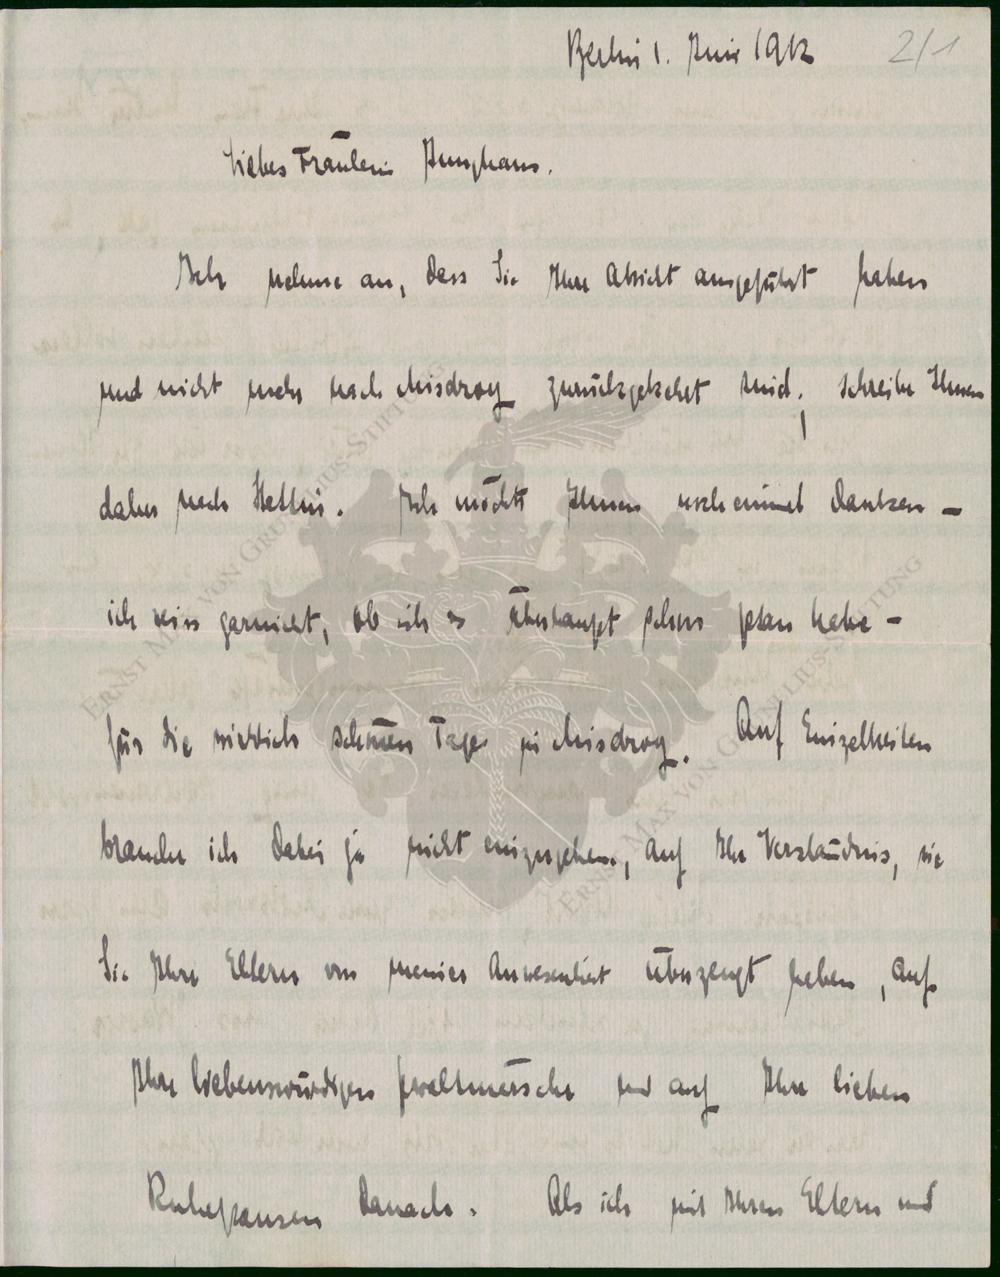 Berlin 1. Juni 1912 2/1
Liebes Fräulein Junghans.
Ich nehme an, dass Sie Ihre Absicht ausgeführt haben
und nicht mehr nach Misdroy zurückgekehrt sind, schreibe Ihnen
daher nach Stettin. Ich möchte Ihnen noch einmal danken –
ich weiss garnicht, ob ich es überhaupt schon getan habe –
für die wirklich schönen Tage in Misdroy. Auf Einzelheiten
brauche ich dabei ja nicht einzugehen, auf Ihr Verständnis, wie
Sie Ihre Eltern von meiner Anwesenheit überzeugt haben, auf
Ihre liebenswürdigen Gewaltmärsche und auf Ihre lieben
Ruhepausen danach. Als ich mit Ihren Eltern und
ERNST MAX VON GRUNELIUS STIFTUNG
ERNST MAX VON GRUNELIUS STIFTUNG